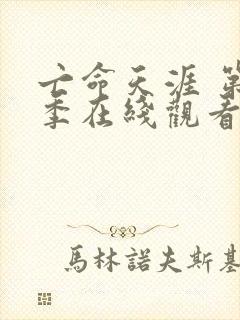 亡命天涯 第
季在綫觀看
馬林諾夫斯基